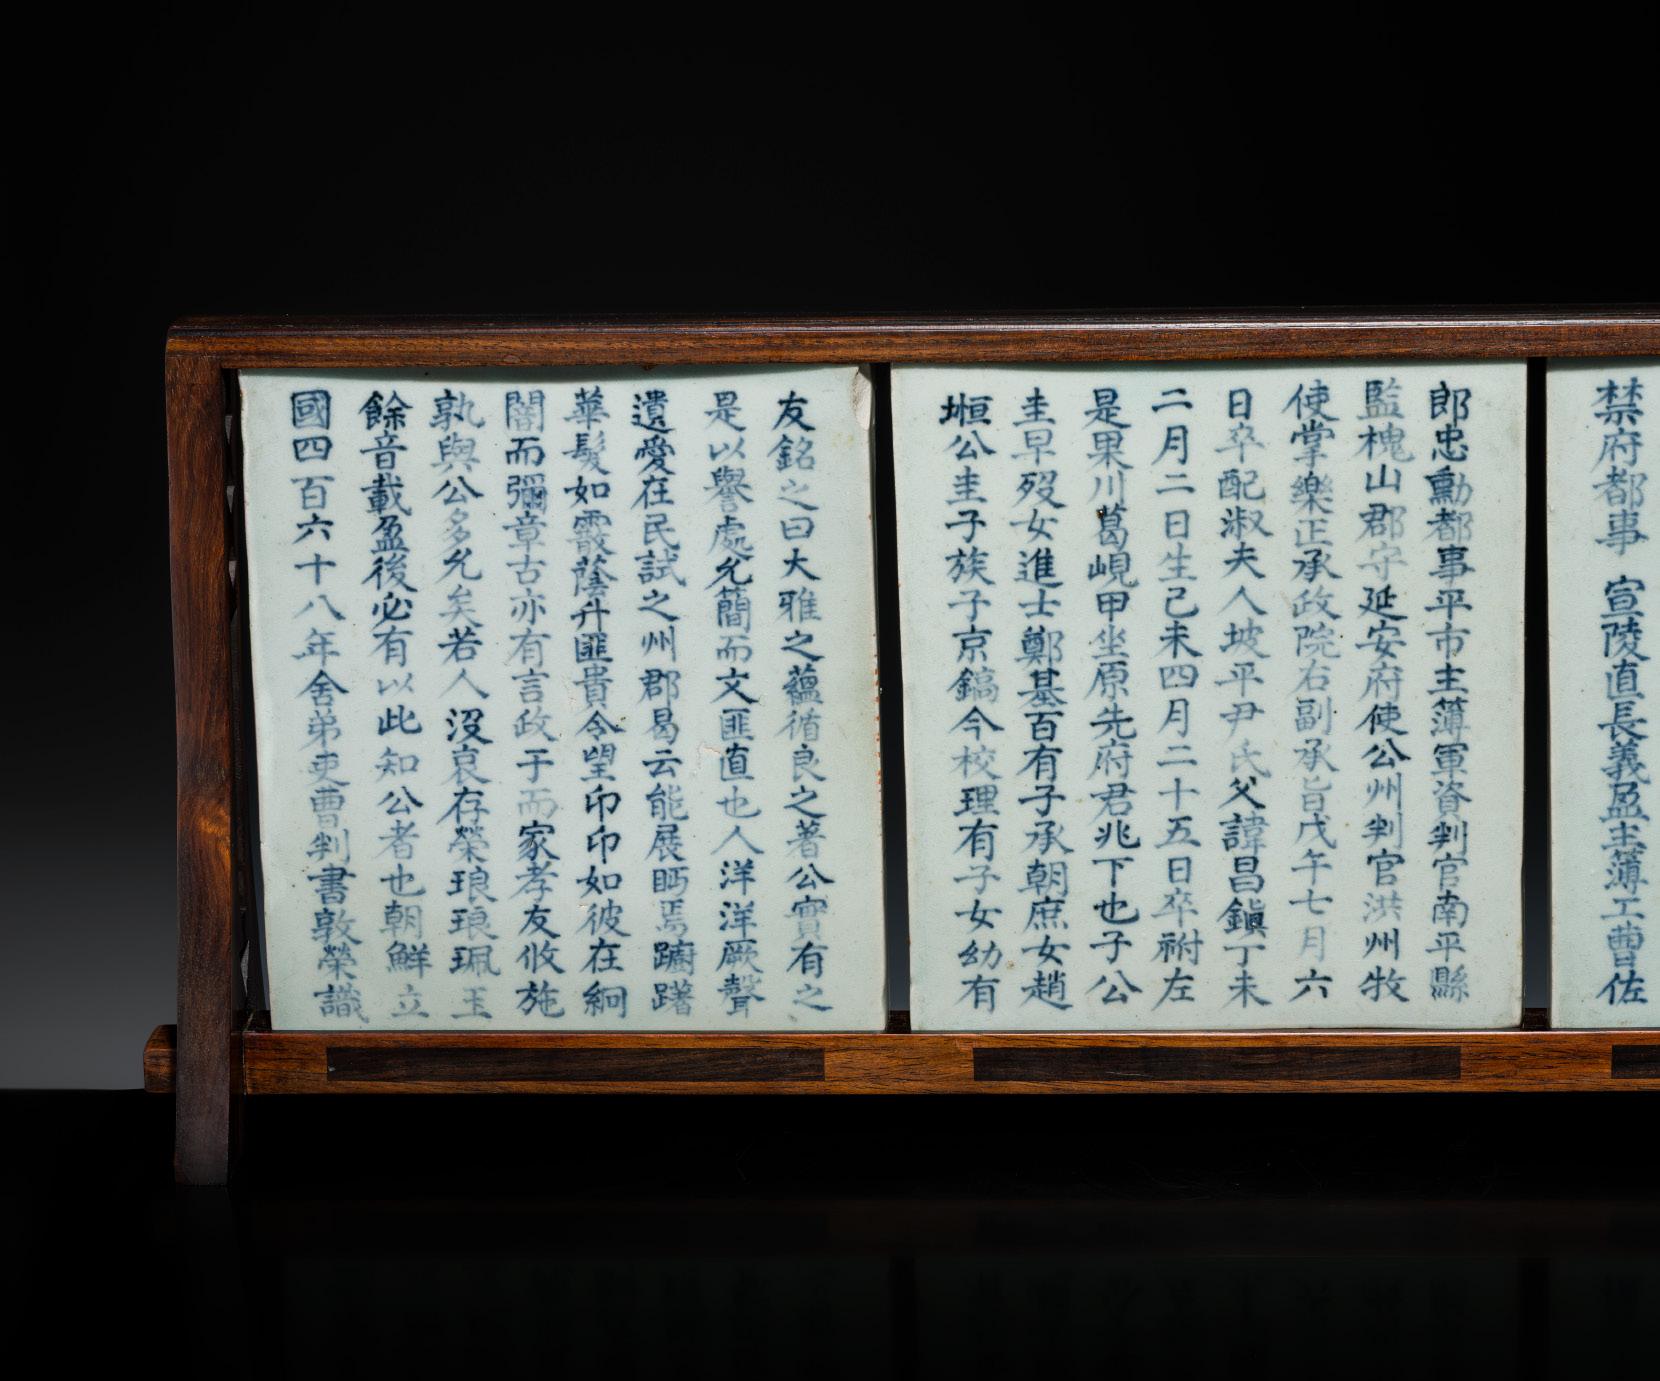 禁府都事 宣陵直長義盈主簿工曹佐
郎忠勳都事平市主簿軍資判官南平縣
監槐山郡守延安府使公州判官洪州牧
使掌樂正承政院右副承旨戊午七月六
日卒配淑夫人坡平尹氏父諱昌鎭丁未
二月二日生己未四月二十五日卒祔左
是果川葛峴甲坐原先府君兆下也子公
圭早歿女進士鄭基百有子承朝庶女趙
垣公圭子族子京鎬今校理有子女幼有
友銘之曰大雅之蘊循良之著公實有之
是以譽處允簡而文匪直也人洋洋厥聲
遺愛在民試之州郡曷云能展眄焉躕躇
華髮如霰蔭升匪貴令望卬卬如彼在絅
闇而彌章古亦有言政于而家孝友攸施
孰與公多允矣若人沒哀存榮琅琅珮玉
餘音載盈後必有以此知公者也朝鮮立
國四百六十八年舍弟吏曹判書敦榮識